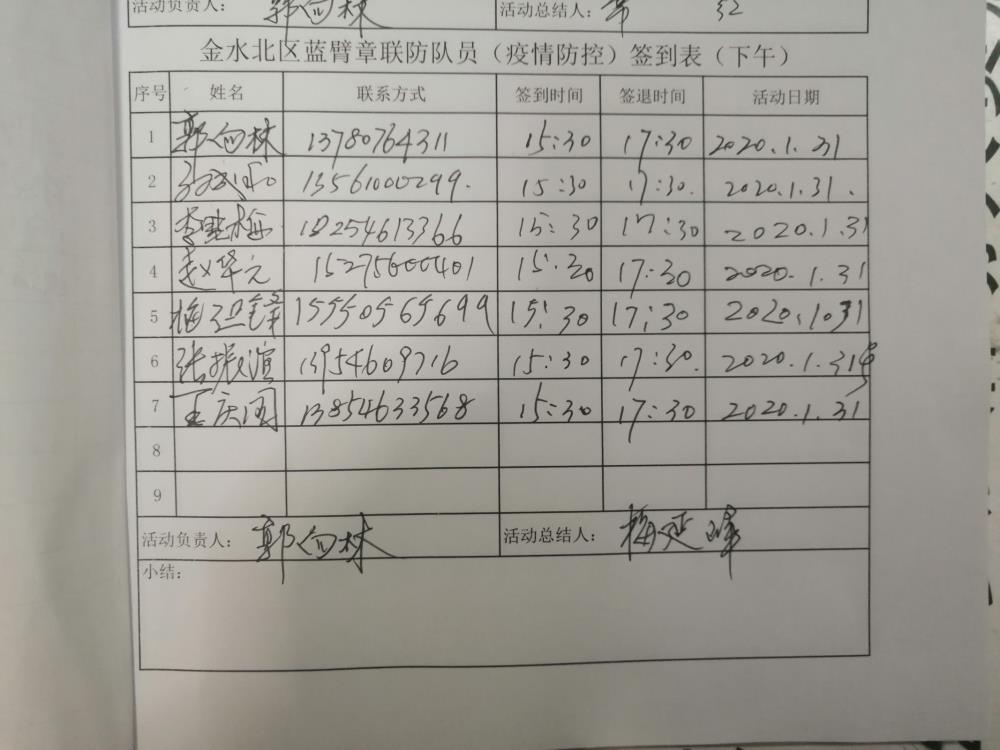 活动负责人： 郭向林 活动总结人：
金水北区蓝臂章联防队员（疫情防控）签到表（下午）
序号 姓名 联系方式 签到时间 签退时间 活动日期
1 郭向林 13780764311 15:30 17:30 2020.1.31
2 13561000299. 15:30 17:30. 2020.1.31.
3 18254613366 15:30 17:30 2020.1.31
4 赵华元 15275600401 15:30 17:30 2020.1.31
5 15550565699 15:30 17:30 2020.1.31
6 张振谊 13954609716 15:30 17:30. 2020.1.31
7 王庆国 13854633568 15:30 17:30 2020.1.31
8
9
活动负责人： 郭向林 活动总结人： 梅延峰
小结：